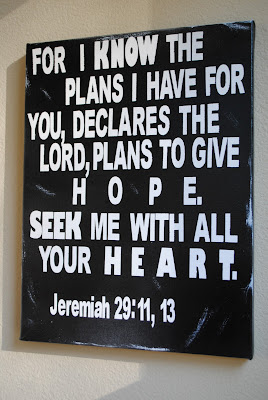 FOR I KNOW THE
PLANS I HAVE FOR
YOU, DECLARES THE
LORD, PLANS TO GIVE
HOPE.
SEEK ME WITH ALL
YOUR HEART.
Jeremiah 29:11, 13